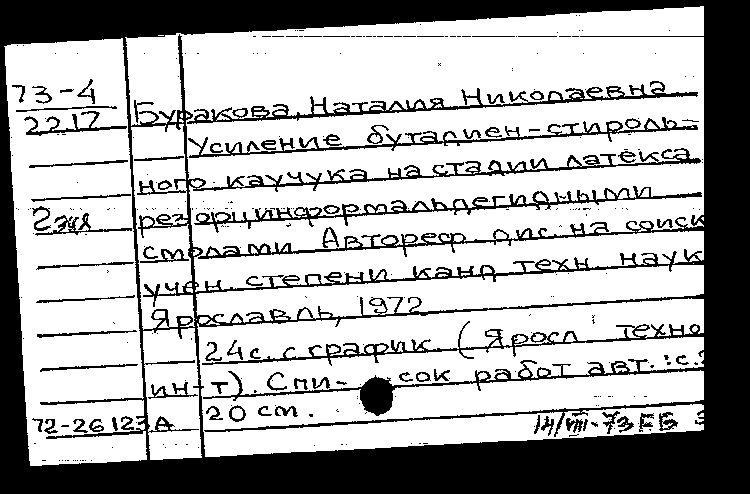 73-4
2217
Буракова, Наталия Николаевна
Усиление бутадиен-стироль-
ного каучука на стадии латекса
2 экз
резорцинформальдегидными
смолами. Автореф. дис. на соиск
учен. степени канд техн. наук
Ярославль, 1972
24 с. с график. (Яросл техно
ин-т). Спи- сок работ авт.: с.
72-26123А
20 см.
14/VIII-73 ББ